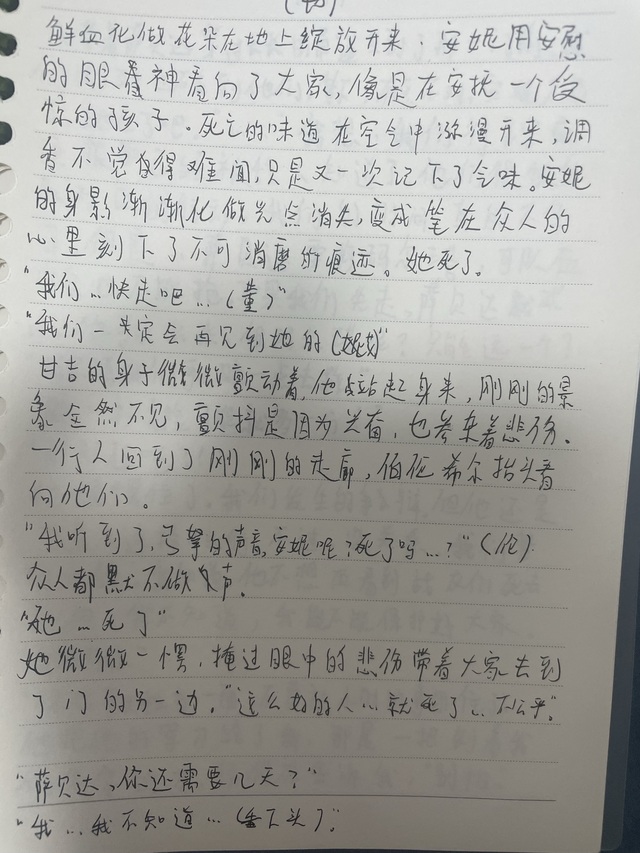 鲜血化做花朵在地上绽放开来.安妮用安慰
的眼神看向了大家,像是在安抚一个受
惊的孩子。死亡的味道在空气中弥漫开来,调
香不觉得难闻,只是又一次记下了气味。安妮
的身影渐渐化做光点消失,变成笔在众人的
心里刻下了不可消磨的痕迹。她死了。
"我们...快走吧...(董)"
"我们一定会再见到她的(妮)"
甘吉的身子微微颤动着,他站起身来,刚刚的景
象全然不见,颤抖是因为兴奋,也参杂着悲伤。
一行人回到了刚刚的走廊,伯伦希尔抬头看
向他们。
"我听到了,弓弩的声音,安妮呢?死了吗...?"(伦)
众人都默不做声。
"她...死了"
她微微一愣,掩过眼中的悲伤带着大家去到
了门的另一边。"这么好的人...就死了...不公平。"
"萨贝达,你还需要几天?"
"我...我不知道...(垂下头)"。